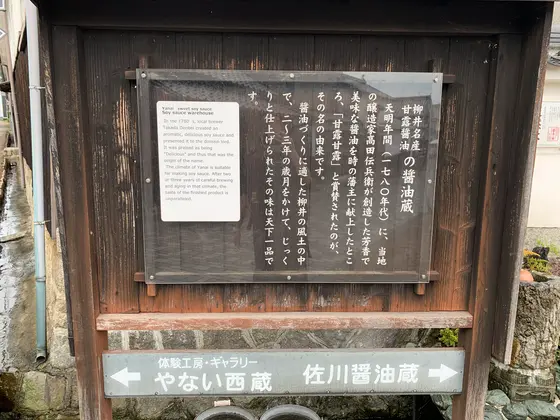 柳井名産
甘露醤油の醤油蔵
天明年間(一七八〇年代)に、当地
の醸造家高田伝兵衛が創造した芳香で
美味な醤油を時の藩主に献上したとこ
ろ、「甘露甘露」と賞賛されたのが、
その名の由来です。
醤油づくりに適した柳井の風土の中
で、二〜三年の歳月をかけて、じっく
りと仕上げられたその味は天下一品で
す。
Yanai sweet soy sauce
Soy sauce warehouse
In the 1780's, local brewer
Takada Denbei created an
aromatic, delicious soy sauce and
presented it to the Shimon lord.
It was praised as being
"Delicious" and that was the
origin of the name.
The climate of Yanai is suitable
for making soy sauce. After two
or three years of careful brewing
and aging in that climate, the
taste of the finished product is
unparalleled.
体験工房・ギャラリー
やない西蔵
佐川醤油蔵